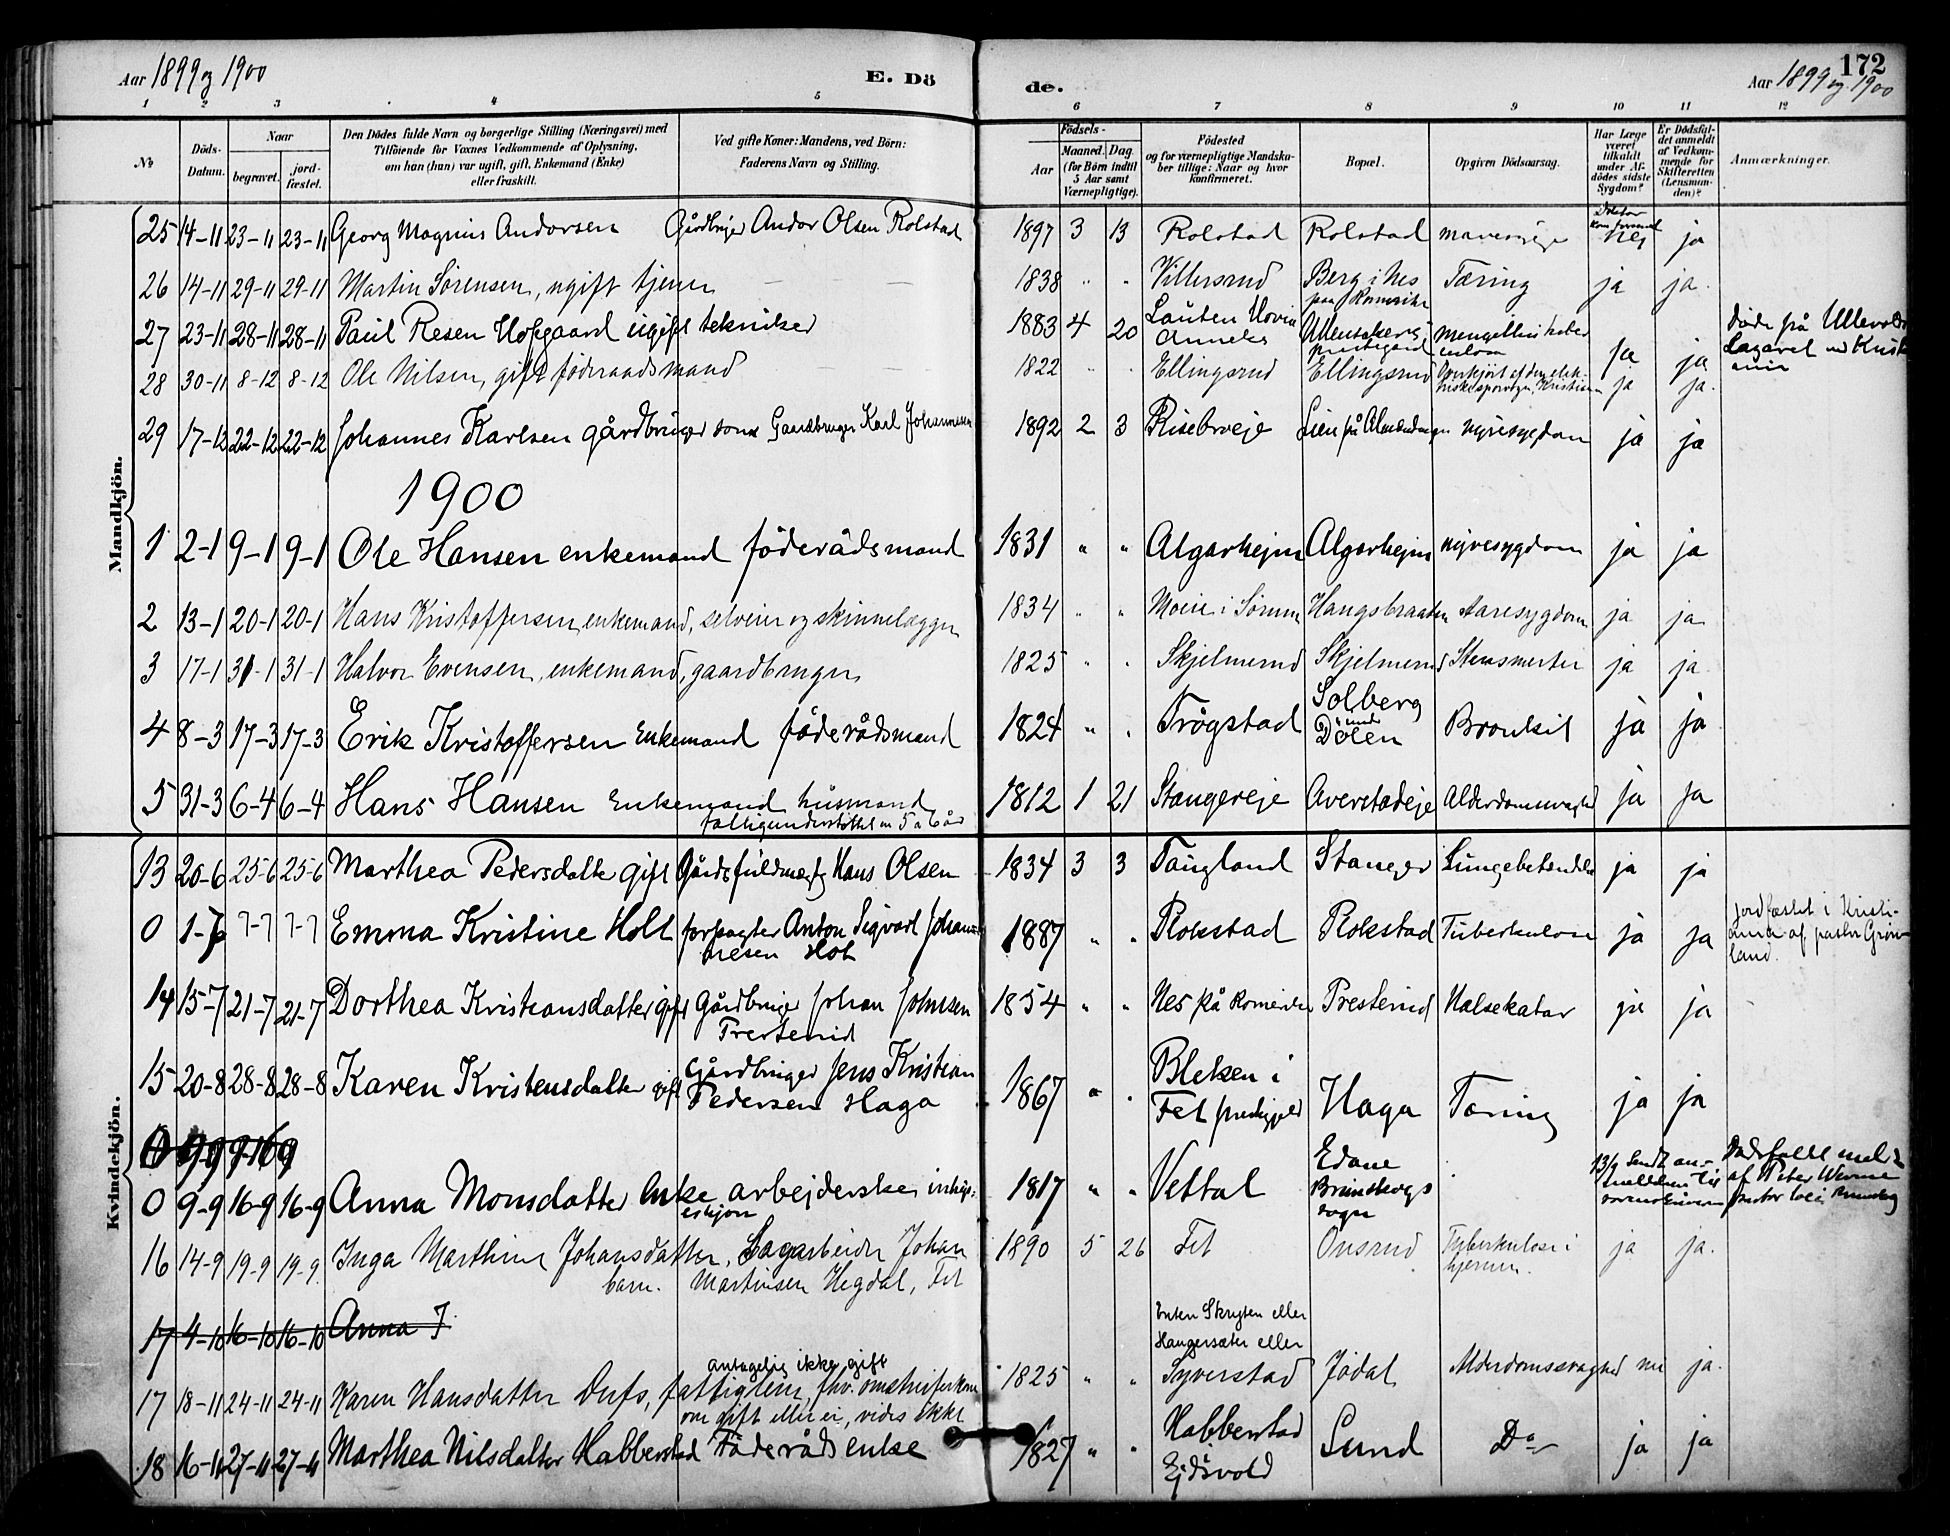 Aar 1899 og 1900 E. Dö de. Aar 1899 og 1900 172
1 2 3 4 5 6 7 8 9 10 11 12
No Döds-Datum. Naar begravet. jord-fæstet. Den Dödes fulde Navn og borgerlige Stilling (Næringsvei) med Tilföiende for Voxnes Vedkommende af Oplysning, om han (hun) var ugift, gift, Enkemand (Enke) eller fraskilt. Ved gifte Koner: Mandens, ved Börn: Faderens Navn og Stilling. Födsels- Aar Maaned. Dag. (for Börn indtil 5 Aar samt Værnepligtige). Födested og for værnepligtige Mandskaber tillige: Naar og hvor konfirmeret. Bopæl. Opgiven Dödsaarsag. Har Læge været tilkaldt under Afdödes sidste Sygdom? Er Dödsfaldet anmeldt af Vedkommende for Skifteretten (Lensmanden)? Anmærkninger.
Mandkjön.
25 14-11 23-11 23-11 Georg Magnus Andorsen Gårdbruger Andor Olsen Rolstad 1897 3 13 Rolstad Rolstad nei ja
26 14-11 29-11 29-11 Martin Sörensen, ugift tjener 1838 " " Villersrud Berg i Nes paa Romerike Tæring ja ja.
27 23-11 28-11 28-11 Paul Resen Hofgaard ugift tekniker 1883 4 20 Ullensakers prestegård ja ja Döde på Ullevold Lazaret ved Kristiania
28 30-11 8-12 8-12 Ole Nilsen, gift föderaadsmand 1822 " " Ellingsrud Ellingsrud Overkjört af den elektriske sporvogn, Kristiania ja ja.
29 17-12 22-12 22-12 Johannes Karlsen gårdbruger sön Gaardbruger Karl Johannesen 1892 2 3 Risebroeje Lien på Almendingen nyresygdom ja ja
1900
1 2-1 9-1 9-1 Ole Hansen enkemand föderådsmand 1831 " " Algarhejm Algarhejm nyresygdom ja ja
2 13-1 20-1 20-1 Hans Kristoffersen, enkemand, selveier og skinnelægger 1834 " " Moeie i Sörum Haugsbraaten Aaresygdom ja ja
3 17-1 31-1 31-1 Halvor Evensen, enkemand, gaardbruger 1825 " " Skjelmerud Skjelmerud Stensmerter ja ja.
4 8-3 17-3 17-3 Erik Kristoffersen Enkemand föderådsmand 1824 " " Frögstad Solberg und Dölen Bronkit ja ja
5 31-3 6-4 6-4 Hans Hansen Enkemand husmand
fattigunderstöttet en 5 a 6 år 1812 1 21 Stangereje Averstadeje Alderdomssvaghed ja ja
Kvindekjön.
13 20-6 25-6 25-6 Marthea Pedersdatter gift Gårdsfuldmægtig Hans Olsen 1834 3 3 Taugland Stanger Lungebetendelse ja ja
0 1-7 7-7 7-7 Emma Kristine Holt forpagter Anton Sigvart Johannesen Holt 1887 " " Rokstad Rokstad Tuberkulose ja ja jordfæstet i Kristiania af pastor Grönland.
14 15-7 21-7 21-7 Dorthea Kristiansdatter gift Gårdbruger Johan Johnsen Presterud 1854 " " Nes på Romerike Presterud Halsekatar ja ja
15 20-8 28-8 28-8 Karen Kristensdatter gift Gårdbruger Jens Kristian Pedersen Haga 1867 " " Bleken i Fet prestegjeld Haga Tæring ja ja
0 9-9 9-16 9
0 9-9 16-9 16-9 Anna Monsdatter Enke arbejderske 1817 " " Vettal Edane Brunsbergs sogn 13/9 Sendt anmeldelse til Dödsfaldet meldt af Peter Werme
16 14-9 19-9 19-9. Inga Marthine Johansdatter, barn. Sagarbeider Johan Martinsen Hegdal, Fet 1890 5 26 Fet Onsrud Tuberkulose i hjernen. ja ja.
17 4-10 16-10 16-10 Anna J
17 18-11 24-11 24-11 Karen Hansdatter Dufs, fattiglem, fhv. omstreiferkone
antagelig ikke gift
om gift eller ei, vides ikke 1825 " " Enten Skrysten eller Haugersæter eller Syverstad Jödal Alderdomssvaghed nei ja.
18 16-11 27-11 27-11 Marthea Nilsdatter Habberstad Föderåds enke 1827 " " Habberstad i Ejdsvold Sund Do ja ja